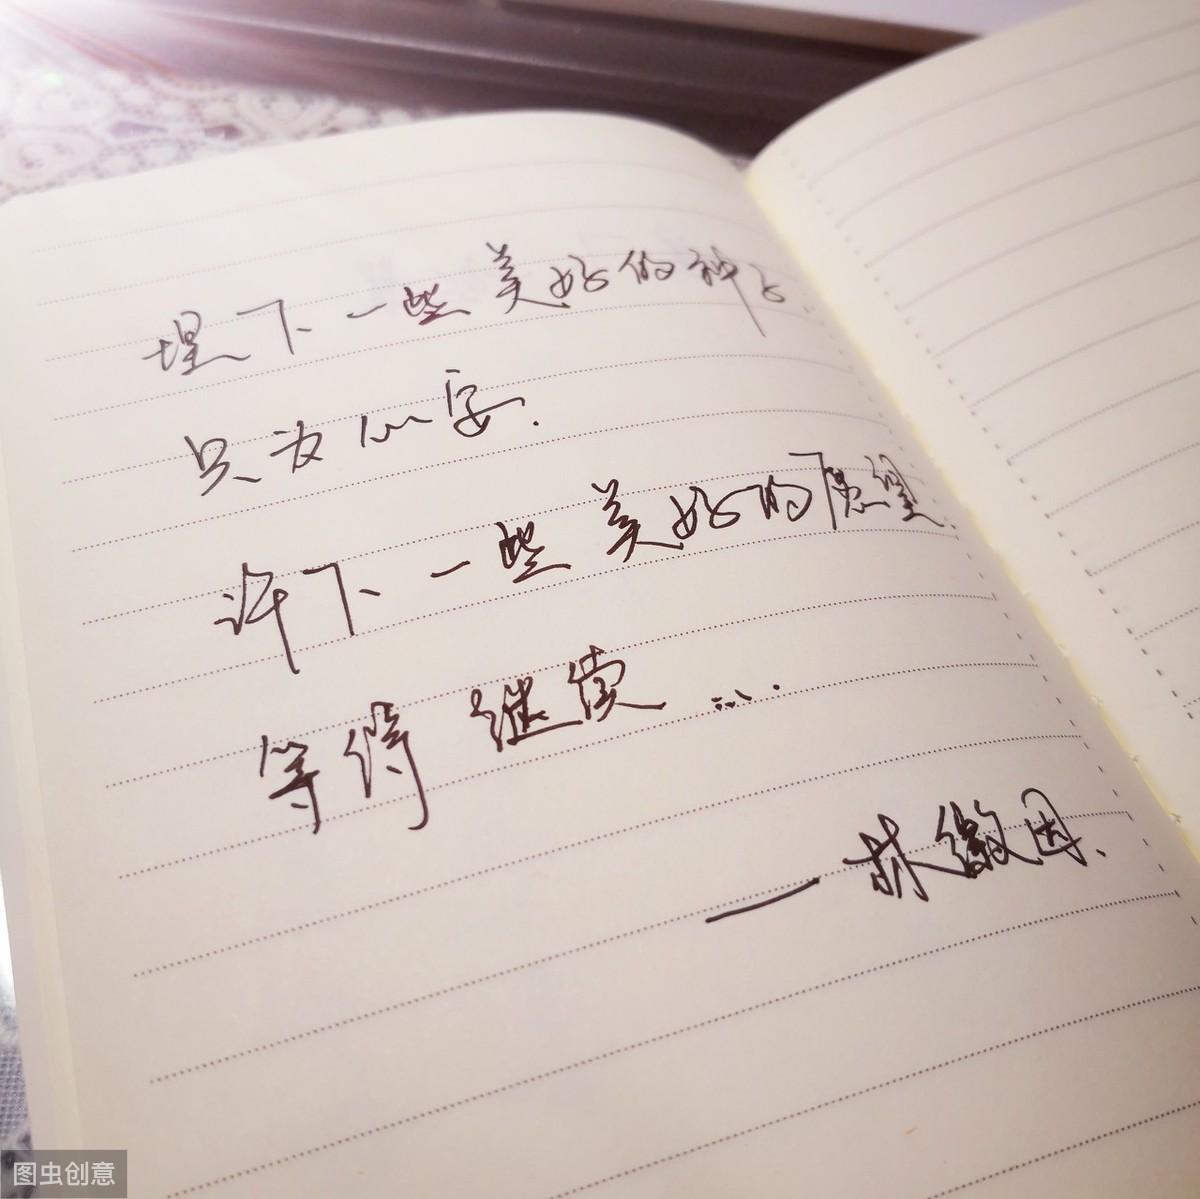 埋下一些美好的种子
只为心安.
许下一些美好的愿望.
等待 继续……
——林徽因.
图虫创意